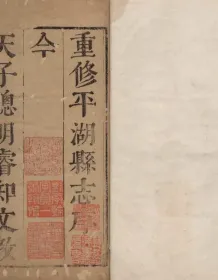 重修平湖縣志序
今
天子聰明睿知文教